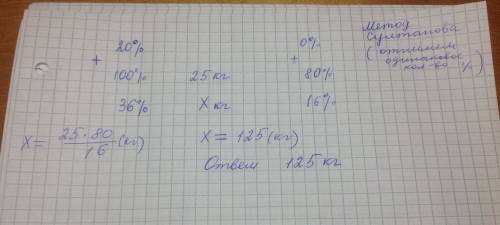 20%
+
100%
36%
25 кг
X кг
0%
+
80%
16%
Метод
Султанова
(отнимем
одинаковое
кол-во %)
X = 25·80/16 (кг)
X = 125 (кг)
Ответ 125 кг